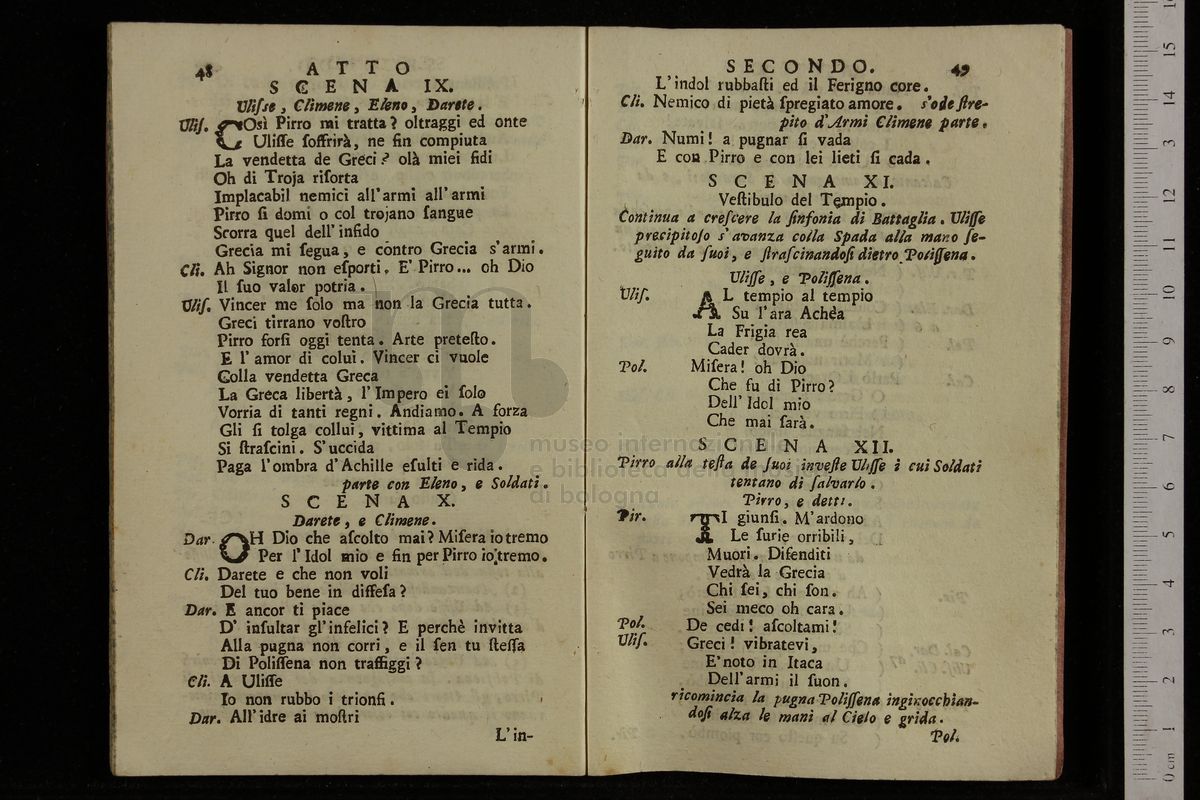 48
ATTO
SCENA IX.
Ulisse, Climene, Eleno, Darete.
Ulis. COsì Pirro mi tratta? oltraggi ed onte
Ulisse soffrirà, ne fin compiuta
La vendetta de Greci? olà miei fidi
Oh di Troja risorta
Implacabil nemici all'armi all'armi
Pirro si domi o col trojano sangue
Scorra quel dell'infido
Grecia mi segua, e contro Grecia s'armi.
Cli. Ah Signor non esporti. E' Pirro... oh Dio
Il suo valor potria.
Ulis. Vincer me solo ma non la Grecia tutta.
Greci tirrano vostro
Pirro forsi oggi tenta. Arte pretesto.
E l'amor di colui. Vincer ci vuole
Colla vendetta Greca
La Greca libertà, l'Impero ei solo
Vorria di tanti regni. Andiamo. A forza
Gli si tolga collui, vittima al Tempio
Si strascini. S'uccida
Paga l'ombra d'Achille esulti e rida.
parte con Eleno, e Soldati.
SCENA X.
Darete, e Climene.
Dar. OH Dio che ascolto mai? Misera io tremo
Per l'Idol mio e fin per Pirro io tremo.
Cli. Darete e che non voli
Del tuo bene in diffesa?
Dar. E ancor ti piace
D' insultar gl'infelici? E perchè invitta
Alla pugna non corri, e il sen tu stessa
Di Polissena non traffiggi?
Cli. A Ulisse
Io non rubbo i trionfi.
Dar. All'idre ai mostri
L'in-
SECONDO. 49
L'indol rubbasti ed il Ferigno core.
Cli. Nemico di pietà spregiato amore. s'ode stre-
pito d'Armi Climene parte.
Dar. Numi! a pugnar si vada
E con Pirro e con lei lieti si cada.
SCENA XI.
Vestibulo del Tempio.
Continua a crescere la sinfonia di Battaglia. Ulisse
precipitoso s'avanza colla Spada alla mano se-
guito da suoi, e strascinandosi dietro Polissena.
Ulisse, e Polissena.
Ulis. AL tempio al tempio
Su l'ara Achea
La Frigia rea
Cader dovrà.
Pol. Misera! oh Dio
Che fu di Pirro?
Dell' Idol mio
Che mai sarà.
SCENA XII.
Pirro alla testa de suoi investe Ulisse i cui Soldati
tentano di salvarlo.
Pirro, e detti.
Pir. TI giunsi. M'ardono
Le furie orribili,
Muori. Difenditi
Vedrà la Grecia
Chi sei, chi son.
Sei meco oh cara.
Pol. De cedi! ascoltami!
Ulis. Greci! vibratevi,
E' noto in Itaca
Dell'armi il suon.
ricomincia la pugna Polissena inginocchian-
dosi alza le mani al Cielo e grida.
Pol.
museo internazionale
e biblioteca della musica
di bologna